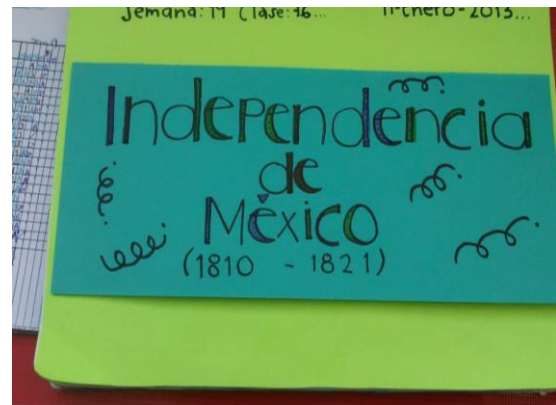 Semana: 19 Clase: 76... 11-Enero-2013...
Independencia
de
México
(1810 - 1821)